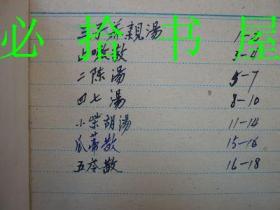 必 拾 书 屋
三子养親湯 1-2
止嗽散 3-4
二陈湯 5-7
四七湯 8-10
小柴胡湯 11-14
瓜蒂散 15-16
五苓散 16-18